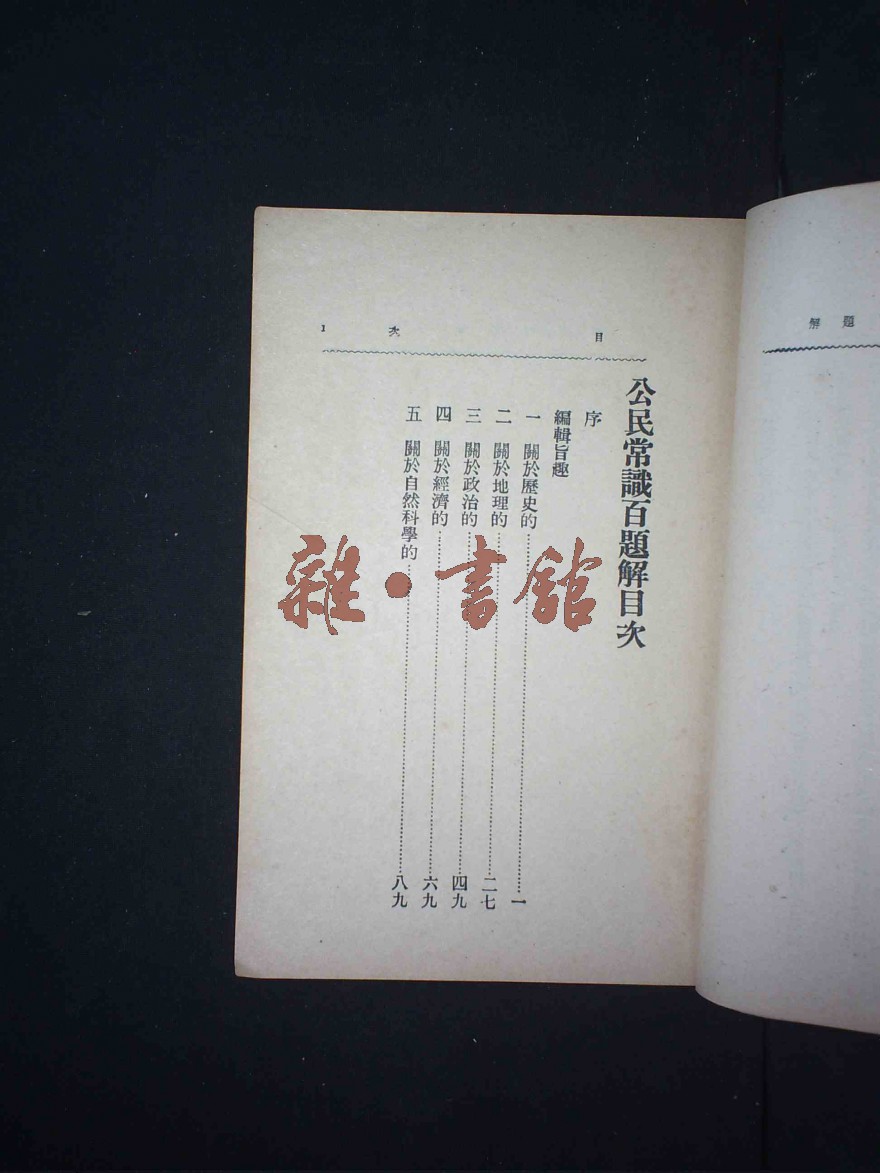 目次 1
公民常識百題解目次
序
編輯旨趣
一 關於歷史的 一
二 關於地理的 二七
三 關於政治的 四九
四 關於經濟的 六九
五 關於自然科學的 八九
題解
雜·書館